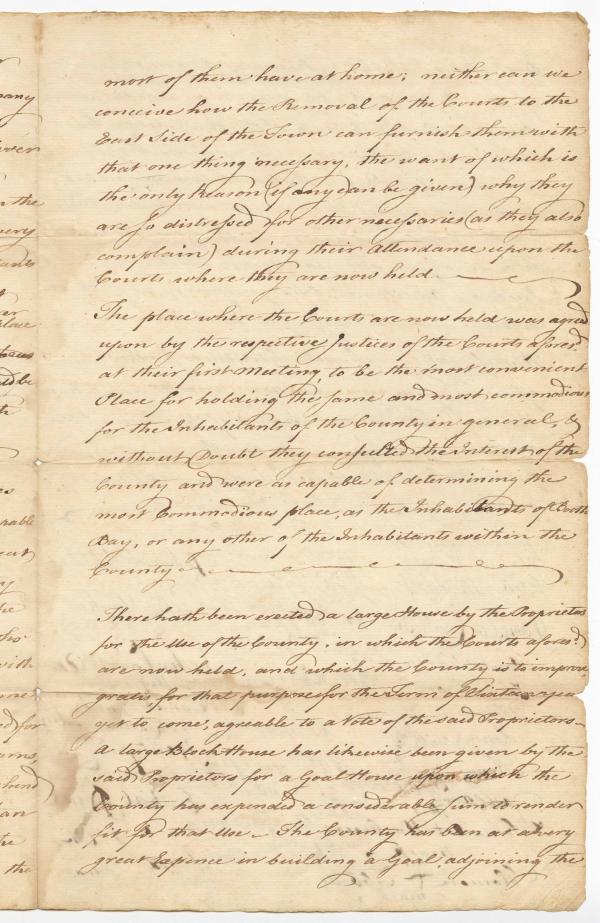 most of them have at home; neither can we
conceive how the Removal of the Courts to the
East Side of the Town can furnish them with
that one thing necessary, the want of which is
the only Reason (if any can be given) why they
are so distressed for other necessaries (as they also
complain) during their Attendance upon the
Courts where they are now held
The place where the Courts are now held was agreed
upon by the respective Justices of the Courts afores.d
at their first Meeting, to be the most convenient
Place for holding the same and most commodious
for the Inhabitants of the County in general, &
without Doubt they consulted the Interest of the
County and were as capable of determining the
most Commodious place, as the Inhabitants of Booth
Bay, or any other of the Inhabitants within the
County
There hath been erected a large House by the Proprietors
for the Use of the County, in which the Courts afores.d
are now held, and which the County is to improve,
gratis, for that purpose for the Term of years
yet to come, agreable to a Vote of the said Proprietors
A large Block House has likewise been given by the
said Proprietors for a Goal House upon which the
County has expended a considerable sum to render
fit for that Use The County has been at a very
great Expence in building a Goal adjoining the